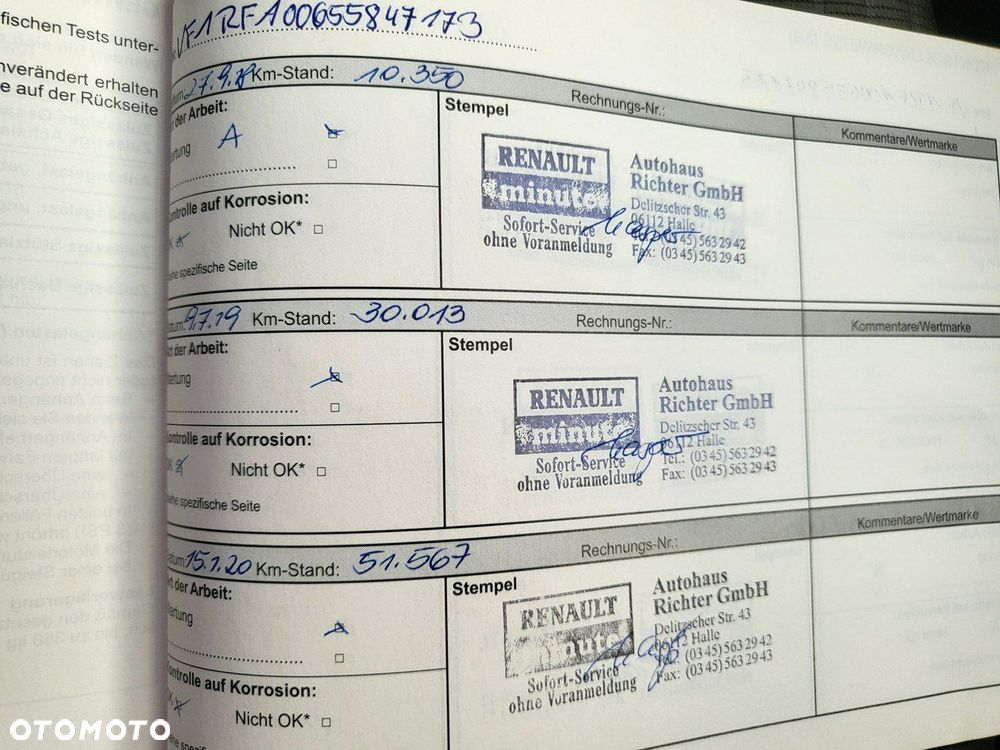 fischen Tests unter-
nverändert erhalten
e auf der Rückseite
VF1RFA00655847173
27.9.18 Km-Stand: 10.350 Rechnungs-Nr.:
der Arbeit: Stempel Kommentare/Wertmarke
artung A
RENAULT
minute
Sofort-Service
ohne Voranmeldung
Autohaus
Richter GmbH
Delitzscher Str. 43
06112 Halle
(03 45) 563 29 42
Fax: (03 45) 563 29 43
ontrolle auf Korrosion:
OK Nicht OK*
ehe spezifische Seite
atum: 9.7.19 Km-Stand: 30.013 Rechnungs-Nr.: Kommentare/Wertmarke
rt der Arbeit: Stempel
artung
RENAULT
minute
Sofort-Service
ohne Voranmeldung
Autohaus
Richter GmbH
Delitzscher Str. 43
06112 Halle
Tel.: (03 45) 563 29 42
Fax: (03 45) 563 29 43
ontrolle auf Korrosion:
OK Nicht OK*
ehe spezifische Seite
atum: 15.1.20 Km-Stand: 51.567 Rechnungs-Nr.: Kommentare/Wertmarke
rt der Arbeit: Stempel
artung
RENAULT
minute
Sofort-Service
ohne Voranmeldung
Autohaus
Richter GmbH
Delitzscher Str. 43
06112 Halle
(03 45) 563 29 42
Fax: (03 45) 563 29 43
ontrolle auf Korrosion:
OK Nicht OK*
he spezifische
OTOMOTO